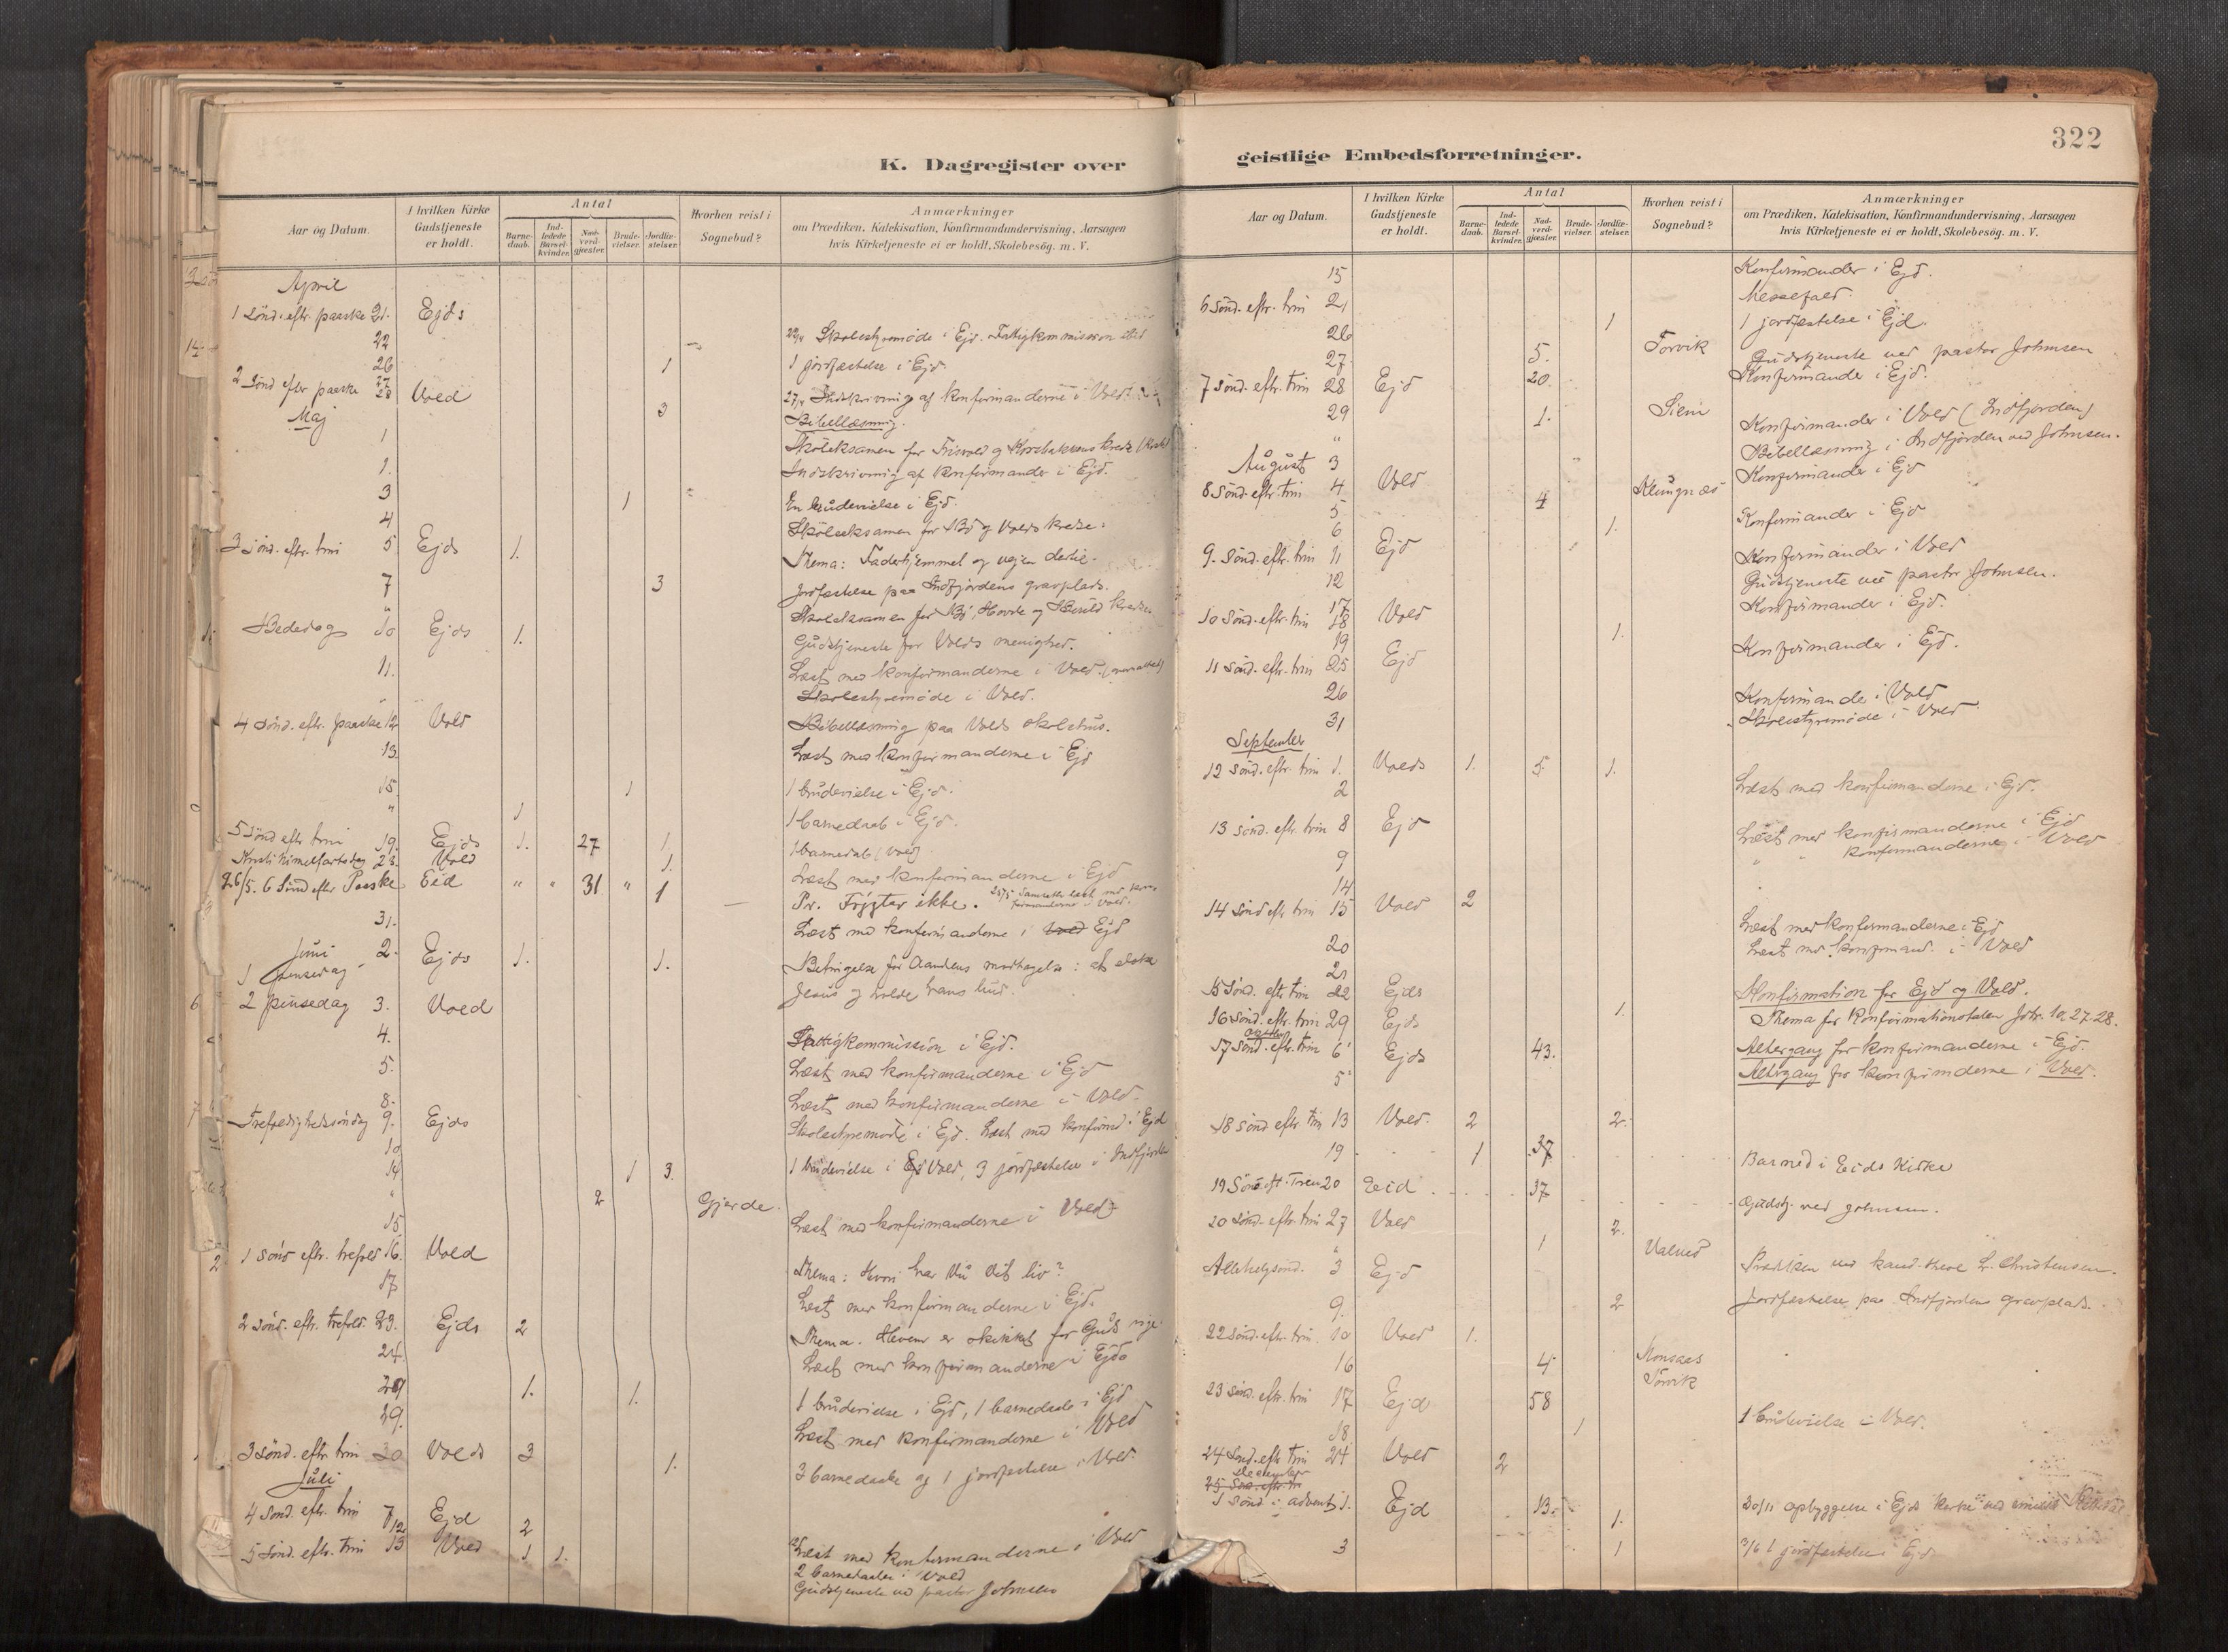 K. Dagregister over
Aar og Datum.
I hvilken Kirke Gudstjeneste er holdt.
Antal
Barnedaab.
Indledede Barselkvinder.
Nadverdgjæster.
Brudevielser.
Jordfæstelser.
Hvorhen reist i Sognebud?
Anmærkninger
om Prædiken, Katekisation, Konfirmandundervisning, Aarsagen
hvis Kirketjeneste ei er holdt, Skolebesög. m. V.
April
1 sönd. eftr. paaske 21. Ejds
22 Skolestyremöde i Ejd. Fattigkommission
26 1 1 jordfæstelse i Ejd.
2 sönd eftr paaske 27 28 Vold 3 27/4 Indskrivning af konfirmanderne i Vold
Maj Bibellæsning.
1 Skoleksamen for
1. Indskrivning af konfirmander i Ejd.
3 1 En brudevielse i Ejd.
4 Skoleeksamen for Bö og Volds kredse.
3 sönd. eftr. trin 5 Ejds 1. Thema: Faderhjemmet og vejen dertil.
7 3 Jordfæstelse paa Indfjordens gravplads.
" Skoleksamen for Bö, Hovde og
Bededag 10 Ejds 1. Gudstjeneste for Volds menighed.
11. Læst med konfirmanderne i Vold.
Skolestyremöde i Vold.
4 sönd. eftr. paaske 12 Vold Bibellæsning paa Volds skolehus.
13. Læst med konfirmanderne i Ejd
15. 1 1 brudevielse i Ejd.
" 1 1 barnedaab i Ejd.
5 sönd eftr trin 19. Ejds 1. 27 1. 1 barnedaab (Vold)
Kristi himelfartsdag 23. Vold 1. Læst med konfirmanderne i Ejd
26/5. 6 Sönd efter Paaske Eid " " 31 " 1 — Pr. Frygter ikke.
31. Læst med konfirmanderne i Vold Ejd
Juni
1 pinsedag 2. Ejds 1. 1. Betingelse for Aandens modtagelse: at elske
Jesus og holde hans bud.
2 pinsedag 3. Voed
4. Fattigkommission i Ejd.
5. Læst med konfirmanderne i Ejd
8. Læst med konfirmanderne i Vold.
Trefoldighedssöndag 9. Ejds Skolestyremöde i Ejd. Læst med konfirmd. i Ejd
10
14 1 3. 1 brudevielse i Ejd Vold, 3 jordfæstelse i Indfjorden
" 2 Gjerde.
15 Læst med konfirmanderne i Vold
1 sönd eftr. trefold 16. Vold Thema: Hvori har du dit liv?
17 Læst med konfirmanderne i Ejd.
2 sönd. eftr. trefold. 23. Ejds 2 Thema. Hvem er skikket for Guds rige
24. Læst med konfirmanderne i Ejds
1. 1. 1 brudevielse i Ejd, 1 barnedaab i Ejd
29. Læst med konfirmanderne i Vold
3 sönd eftr trin 30 Volds 3 1. 3 barnedaabe og 1 jordfæstelse i Vold.
Juli
4 Sönd. eftr. trin 7 Ejd 2
12 Læst med konfirmanderne i Vold
5 Sönd. eftr. trin 13 Vold 1 1. 2 barnedaabe i Vold
Gudstjeneste ved pastor Johnsen
322
geistlige Embedsforretninger.
Aar og Datum.
I hvilken Kirke Gudstjeneste er holdt.
Antal
Barnedaab.
Indledede Barselkvinder.
Nadverdgjæster.
Brudevielser.
Jordfæstelser.
Hvorhen reist i Sognebud?
Anmærkninger
om Prædiken, Katekisation, Konfirmandundervisning, Aarsagen
hvis Kirketjeneste ei er holdt, Skolebesög. m. V.
15 Konfirmander i Ejd.
6 sönd. eftr. trin 21 Messefald.
26 1 1 jordfæstelse i Ejd.
27. 5. Torvik Gudstjeneste ved pastor Johnsen
7 sönd. eftr. trin 28 Ejd 20. Konfirmander i Ejd.
29 1. Siem Konfirmander i Vold (Indfjorden)
" Bibellæsning i Indfjorden ved Johnsen.
August 3 Konfirmander i Ejd
8 sönd. eftr. trin 4 Vold 4 Klungnæs
5. Konfirmander i Ejd
6 1.
9. sönd. eftr. trin 11 Ejd Konfirmander i Vold
12 Gudstjeneste ved pastor Johnsen.
17 Konfirmander i Ejd.
10 sönd. eftr. trin 18 Vold
19 1. Konfirmander i Ejd.
11 sönd. eftr. trin 25 Ejd
26 Konfirmander i Vold
31 Skolestyremöde i Vold
September
12 sönd. eftr. trin 1. Volds 1. 5. 1.
2 Læst med konfirmanderne i Ejd.
13 sönd. eftr. trin 8 Ejd Læst med konfirmanderne i Ejd
9 " " konfirmanderne i Vold
14
14 sönd eftr trin 15 Vold 2
20 Læst med konfirmanderne i Ejd
21 Læst med konfirmand. i Vold
15 Sönd. eftr trin 22 Ejds Konfirmation for Ejd og Vold.
16 sönd. eftr. trin 29 Ejds 1. Thema for konfirmationstalen Joh. 10. 27-28.
Oktober
17 sönd. eftr. trin 6 Ejds 43. Altergang for konfirmanderne i Ejd.
5 Altergang for konfirmderne i Vold.
18 sönd eftr. trin 13 Vold. 2 2.
19 1 37 Barned i Eids Kirke
19 Sönd eft. Tren 20 Eid 37 Gudstj. ved Johnsen.
20 sönd. eftr. trin 27 Vold 2.
" 1
Allehelgsönd. 3 Ejd Prædiken ved kand. theol L. Christensen.
9. 2 Jordfæstelse paa Indfjordens gravplads.
22 sönd. eftr. trin. 10 Vold 1.
16 4 Monsaas
Torvik
23 sönd. eftr. trin 17 Ejd 58
18 1 1 brudevielse i Vold.
24 Sönd. eftr trin 24 Vold 2
December
25 Sön. eftr. tr
1 sönd i advent 1. Ejd 13. 1. 30/11 opbyggelse i Ejds kirke ved
3 1 1 jordfæstelse i Ejd